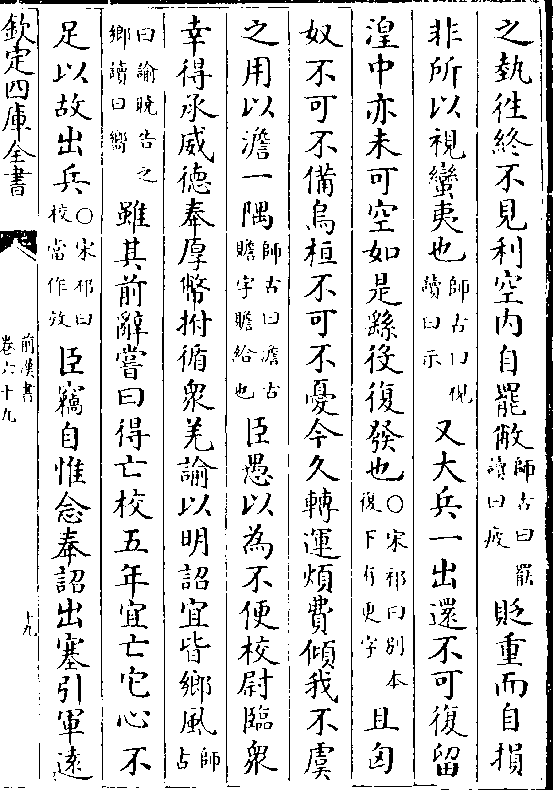 之埶往終不見利空内自罷敝師古曰罷讀曰疲貶重而自損
非所以視蠻夷也師古曰視讀曰示又大兵一出還不可復留
湟中亦未可空如是繇役復發也○宋祁曰别本復下有更字且匈
奴不可不備烏桓不可不憂今久轉運煩費傾我不虞
之用以澹一隅師古曰澹古贍字贍給也臣愚以為不便校尉臨衆
幸得承威德奉厚幣拊循衆羌諭以明詔宜皆鄉風師古
曰諭曉告之鄉讀曰嚮雖其前辭嘗曰得亡校五年宜亡它心不
足以故出兵○宋祁曰校當作效臣竊自惟念奉詔出塞引軍遠
欽定四庫全書
前漢書
卷六十九
十九